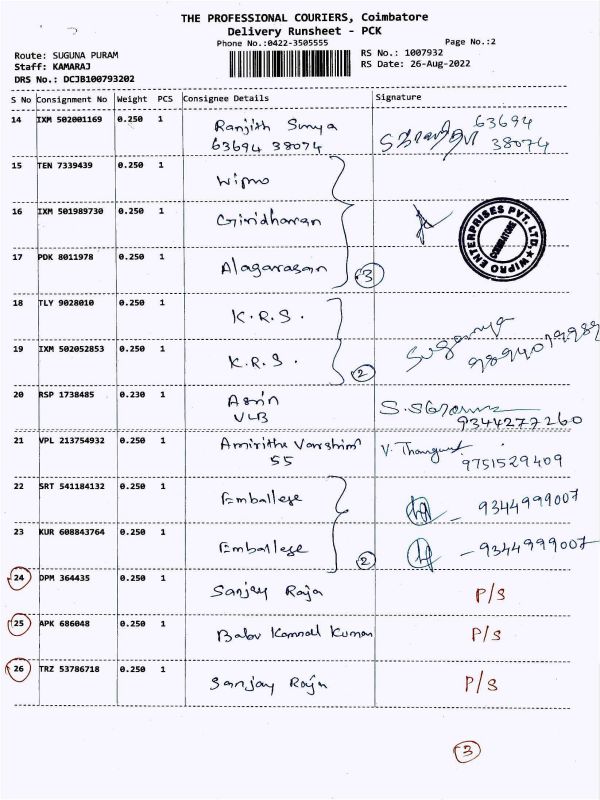 THE PROFESSIONAL COURIERS, Coimbatore
Delivery Runsheet - PCK
Phone No.:0422-3505555
Page No.:2
Route: SUGUNA PURAM
Staff: KAMARAJ
DRS No.: DCJB100793202
RS No.: 1007932
RS Date: 26-Aug-2022
S No Consignment No Weight PCS Consignee Details Signature
14 IXM 502001169 0.250 1 Ranjith Surya 63694
63694 38074 38074
15 TEN 7339439 0.250 1 Wipro
16 IXM 501989730 0.250 1 Giridharan
WIPRO ENTERPRISES PVT. LTD.
COIMBATORE
17 PDK 8011978 0.250 1 Alagarasan
3
18 TLY 9028010 0.250 1 K.R.S.
Suganya
19 IXM 502052853 0.250 1 K.R.S.
2
20 RSP 1738485 0.230 1
VLB 9344277260
21 VPL 213754932 0.250 1 Amiritha Varshini V.
55 9751529409
22 SRT 541184132 0.250 1 Emballege - 9344999007
23 KUR 608843764 0.250 1 Emballege - 9344999007
2
24 DPM 364435 0.250 1 Sanjay Raja P/S
25 APK 686048 0.250 1 Babu Kumar P/S
26 TRZ 53786718 0.250 1 Sanjay Raja P/S
3